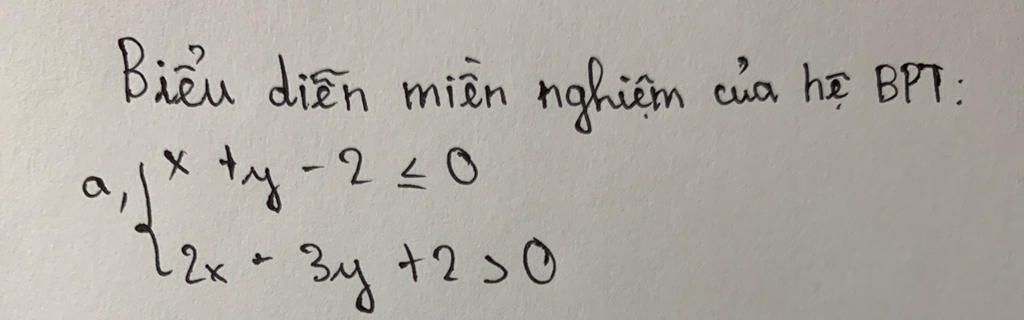 Biểu diễn miền nghiệm của hệ BPT:
a, { x + y - 2 ≤ 0
2x - 3y + 2 > 0